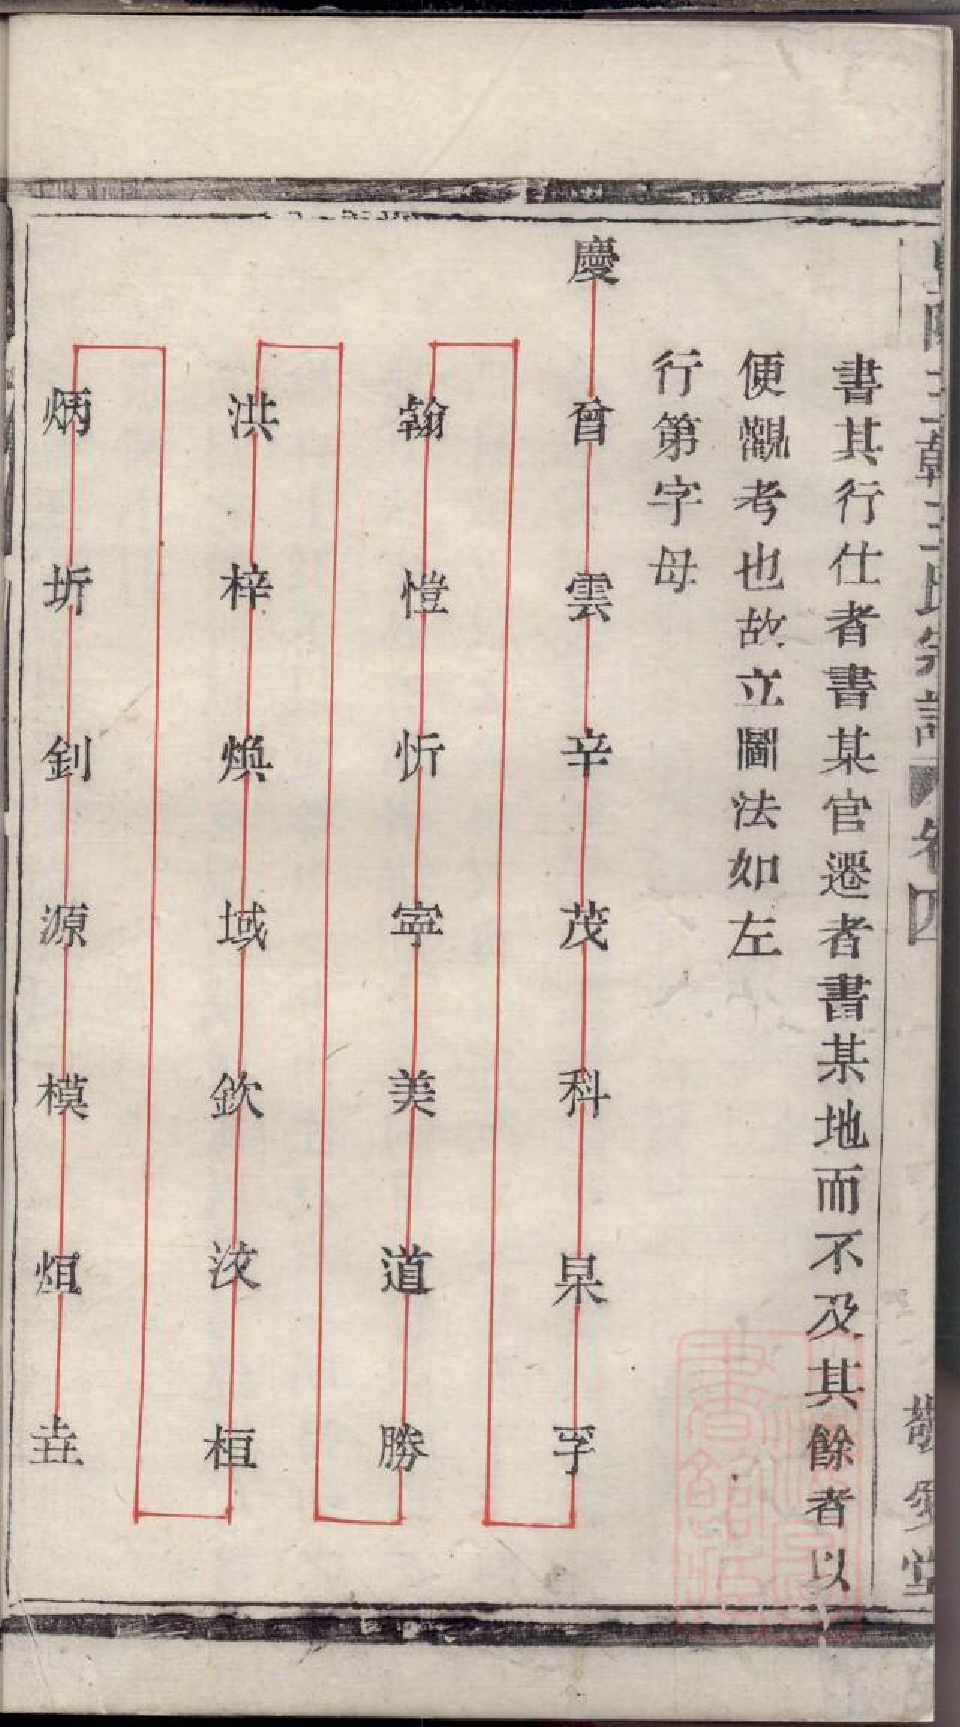 書其行仕者書某官遷者書某地而不及其餘者以
便觀考也故立圖法如左
行第字母
慶曾雲辛茂科杲孚
翰愷忻寜美道勝
洪梓煥域欽洨桓
炳圻釗源模烜垚
王氏宗譜 卷四
敬愛堂